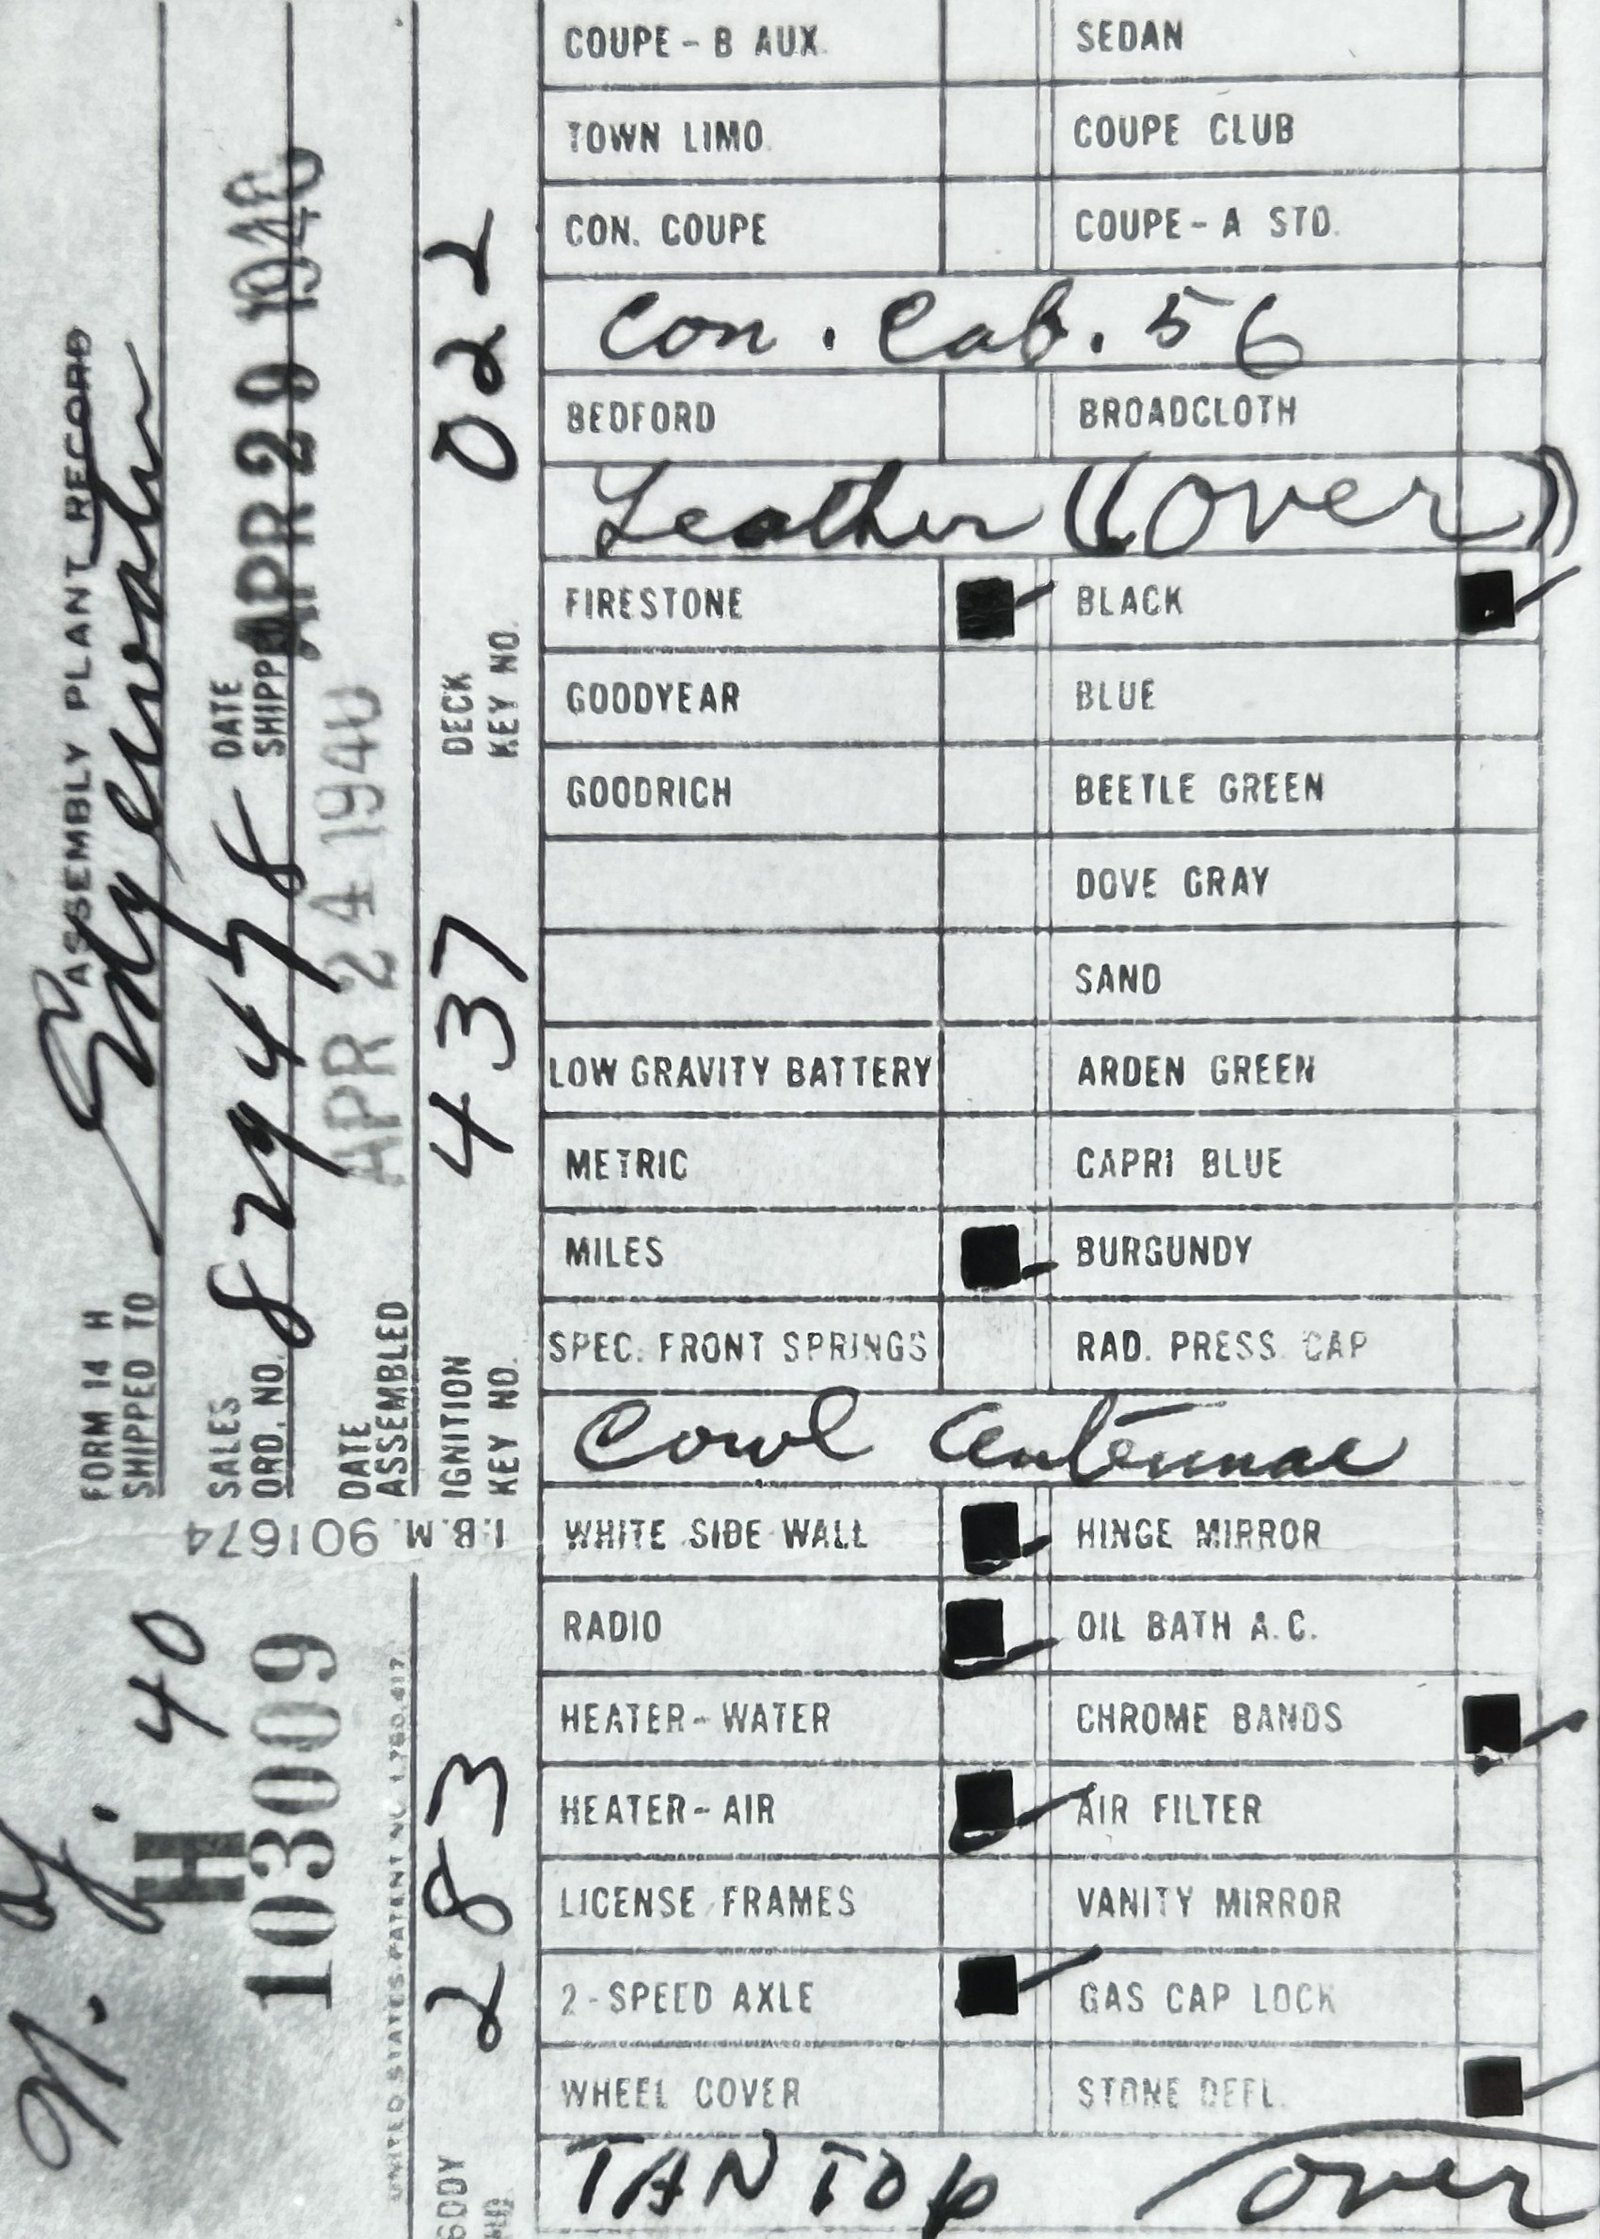 COUPE - B AUX. SEDAN
TOWN LIMO. COUPE CLUB
CON. COUPE COUPE - A STD.
Con. Cab. 56
BEDFORD BROADCLOTH
Leather ((over))
FIRESTONE BLACK
GOODYEAR BLUE
GOODRICH BEETLE GREEN
DOVE GRAY
SAND
LOW GRAVITY BATTERY ARDEN GREEN
METRIC CAPRI BLUE
MILES BURGUNDY
SPEC. FRONT SPRINGS RAD. PRESS. CAP
Cowl Antennae
WHITE SIDE WALL HINGE MIRROR
RADIO OIL BATH A.C.
HEATER - WATER CHROME BANDS
HEATER - AIR AIR FILTER
LICENSE FRAMES VANITY MIRROR
2 - SPEED AXLE GAS CAP LOCK
WHEEL COVER STONE DEFL.
TAN TOP over
ASSEMBLY PLANT RECORD
FORM 14 H
SHIPPED TO
SALES ORD. NO.
DATE SHIPPED APR 29 1940
DATE ASSEMBLED APR 24 1940
IGNITION KEY NO. 437
DECK KEY NO. 022
I.B.M. 901674
40
H
103009
UNITED STATES PATENT NO. 1,780,617
BODY NO. 283